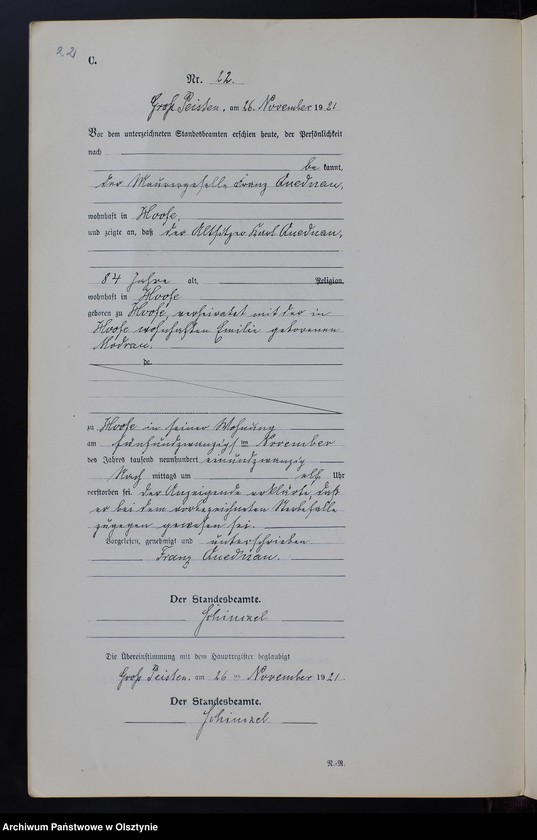 22
C.
Nr. 22.
Groß Peisten, am 26. November 1921
Vor dem unterzeichneten Standesbeamten erschien heute, der Persönlichkeit
nach
be kannt,
der Maurergeselle Franz Quednau,
wohnhaft in Hoofe,
und zeigte an, daß der Altsitzer Karl Quednau,
84 Jahre alt, Religion,
wohnhaft in Hoofe
geboren zu Hoofe, verheiratet mit der in
Hoofe wohnhaften Emilie geborenen
Modrau.
de
zu Hoofe in seiner Wohnung
am fünfundzwanzigsten November
des Jahres tausend neunhundert einundzwanzig
Nach mittags um elf Uhr
verstorben sei. Der Anzeigende erklärte, daß
er bei dem vorbezeichneten Sterbefalle
zugegen gewesen sei.
Vorgelesen, genehmigt und unterschrieben
Franz Quednau.
Der Standesbeamte.
Schinkel
Die Übereinstimmung mit dem Hauptregister beglaubigt
Groß Peisten, am 26 ten November 1921.
Der Standesbeamte.
Schinkel
R.-R.
Archiwum Państwowe w Olsztynie